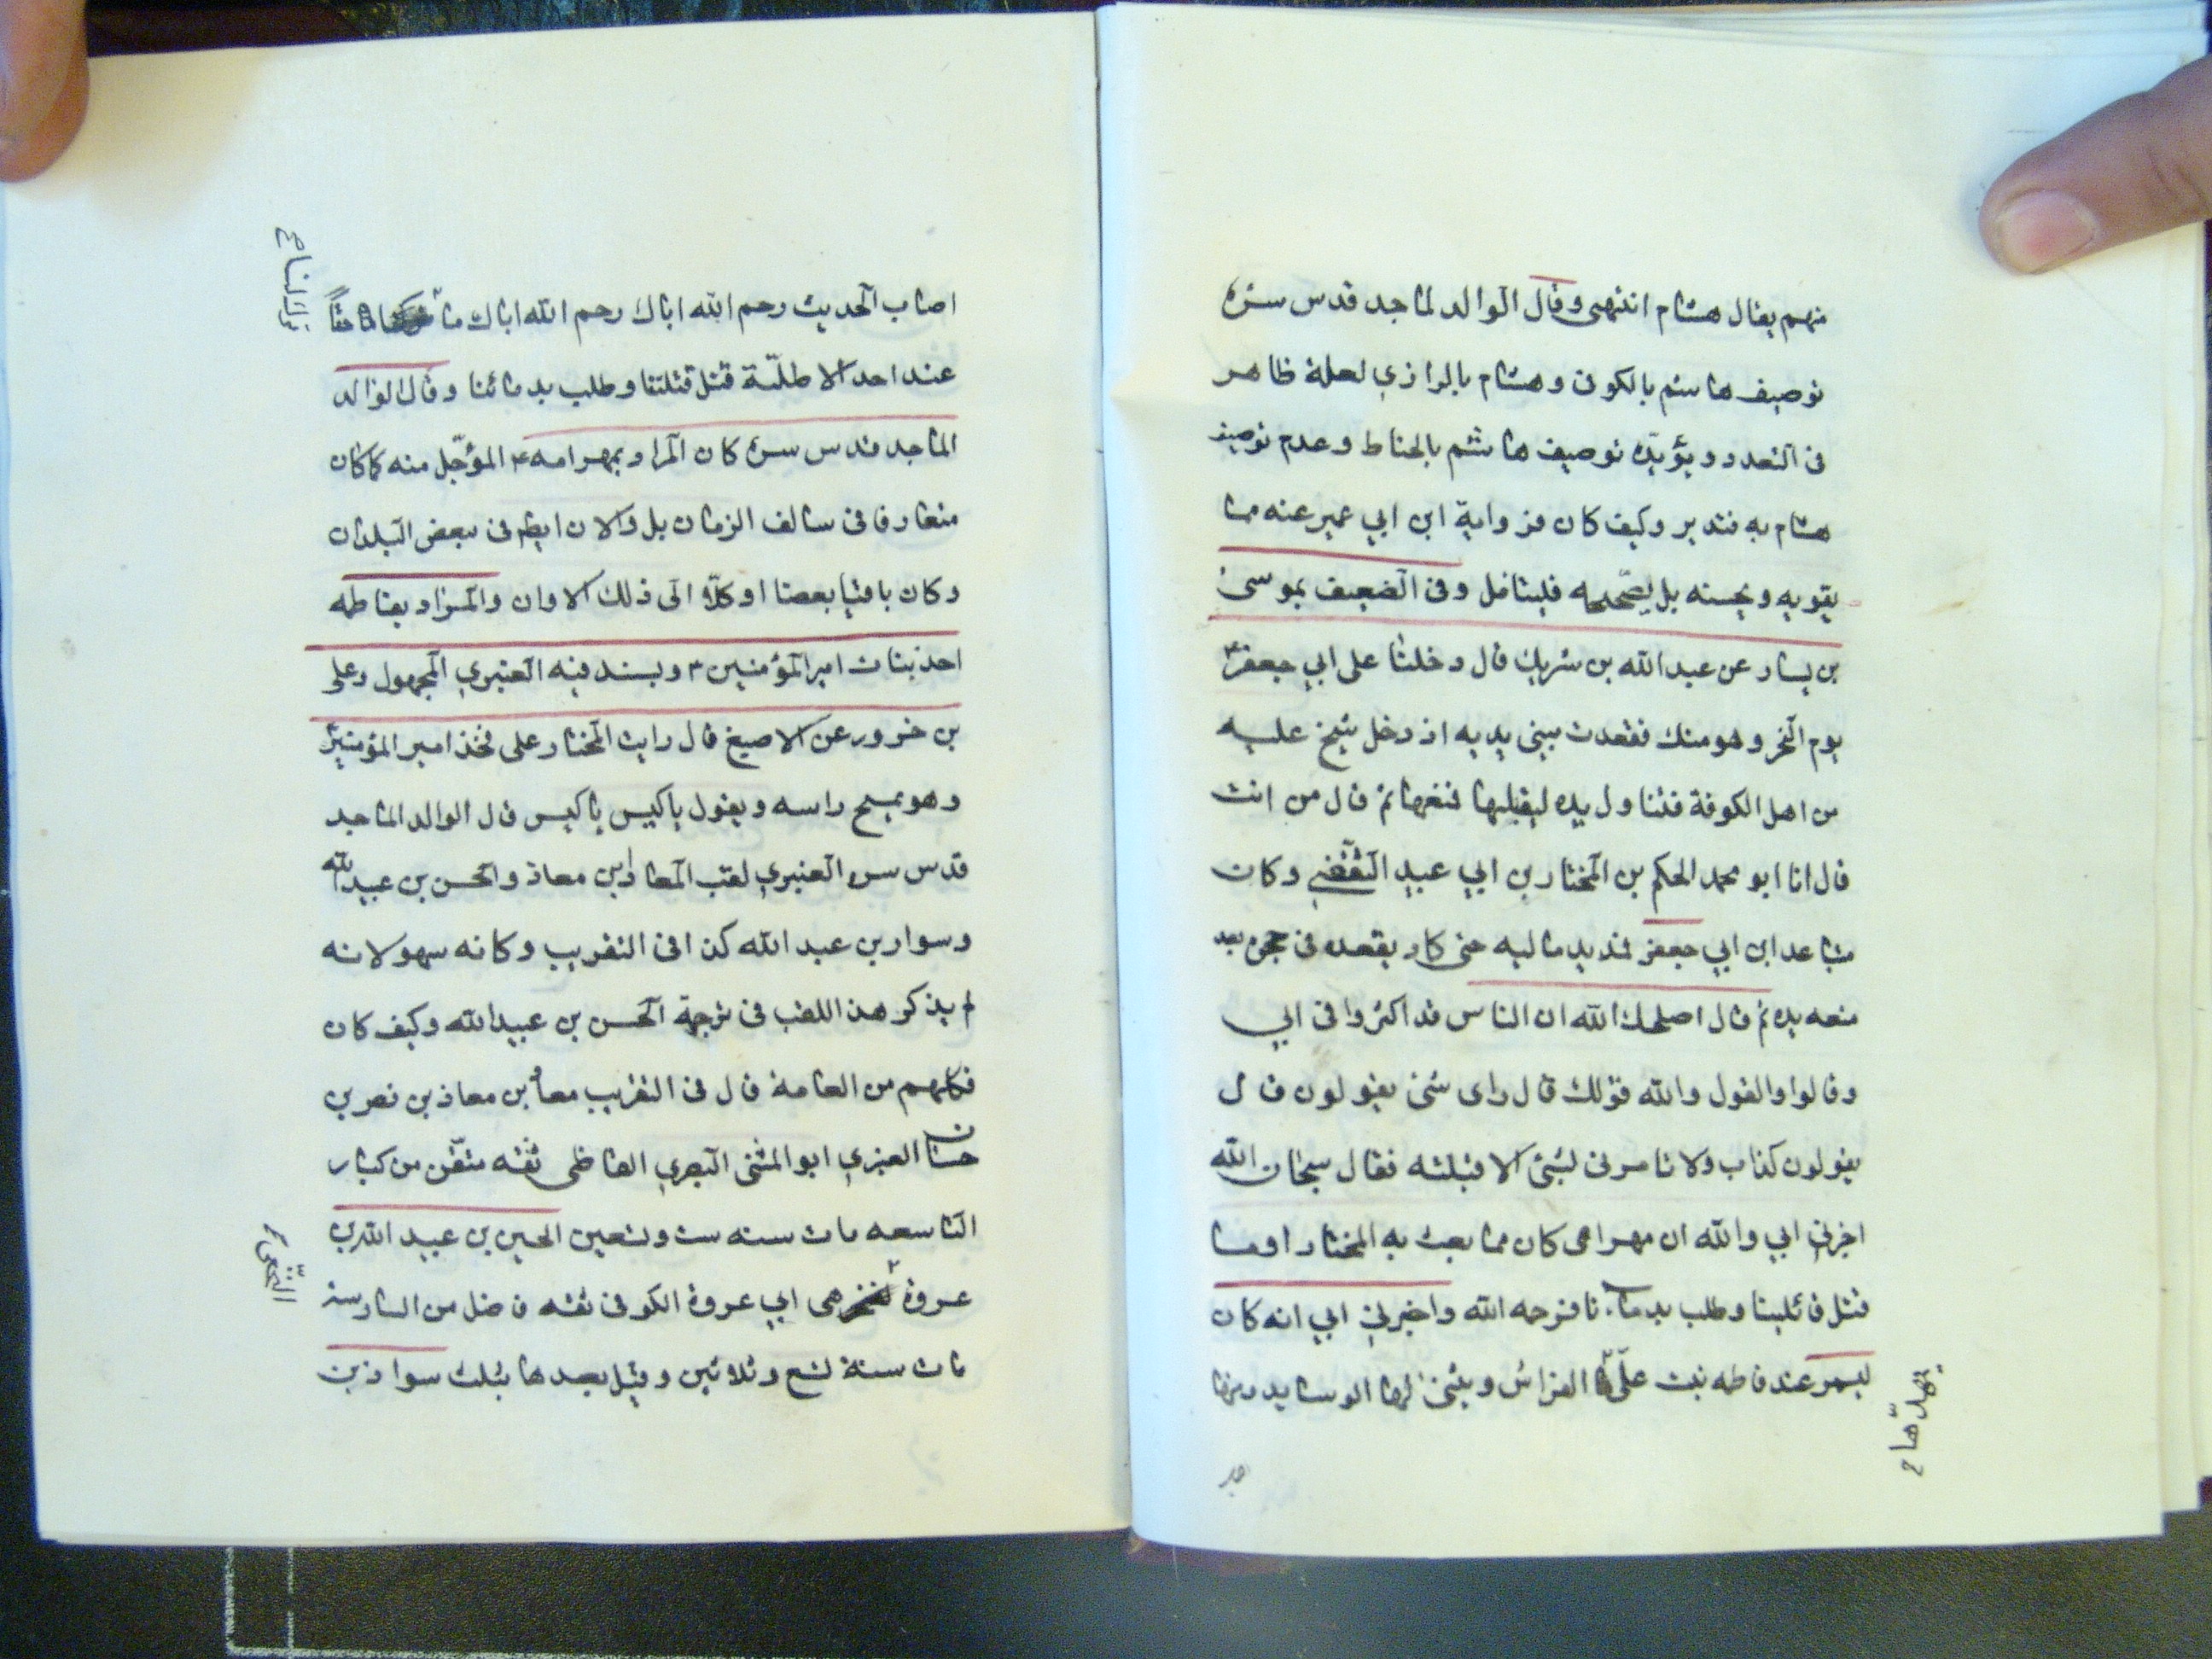 منهم يقال هشام انتهى وقال الوالد لماجد قدس سره
توصيف هاشم بالكوفى وهشام بالرازي لعله ظاهر
فى التعدد ويؤيده توصيف هاشم بالحناط وعدم توصيف
هشام به فتدبر وكيف كان فرواية ابن ابي عمير عنه مما
يقويه ويحسنه بل يصححه فليتامل وفى الضعيف بموسى
بن يسار عن عبد الله بن شريك قال دخلنا على ابي جعفر ع
يوم النحر وهو متك فقعدت بينى يديه اذ دخل شيخ عليه
من اهل الكوفة فتناول يده ليقبلها فمنعها ثم قال من انت
قال انا ابو محمد الحكم بن المختار بن ابي عبيد الثقفي وكان
متباعدا بن ابي جعفر فمد يده اليه حتى كاد يقعده فى حجره بعد
منعه يده ثم قال اصلحك الله ان الناس قد اكثروا فى ابي
وقالوا والقول والله قولك قال واى شئ يقولون قال
يقولون كذاب ولا تامرنى بشئ الا قبلته فقال سبحان الله
اخبرني ابي والله ان مهر امى كان مما بعث به المختار اوما
قتل قاتلينا وطلب بدمائنا فرحمه الله واخبرني ابي انه كان
ليسمر عند فاطمه بنت على الفراش ويثنى لها الوسايد ومنها
يمهدها ح
اصاب الحديث رحم الله اباك رحم الله اباك ما حقا
ترك لنا ح
عند احد الا طلبه قتل قتلتنا وطلب بدمائنا وقال الوالد
الماجد قدس سره كان المراد بمهر امه ع المؤجل منه كما كان
متعارفا فى سالف الزمان بل والان ايضا فى بعض البلدان
وكان باقيا بعضا او كله الى ذلك الاوان والمراد بفاطمه
احد بنات امير المؤمنين ع وبسند فيه العنبري المجهول وعلى
بن حزور عن الاصبغ قال رايت المختار على فخذ امير المؤمنين
وهو يمسح راسه ويقول ياكيس ياكيس قال الوالد الماجد
قدس سره العنبري لقب المعاذ بن معاذ والحسن بن عبيد الله
وسوار بن عبد الله كذا فى التقريب وكانه سهو لانه
لم يذكر هذا اللقب فى ترجمة الحسن بن عبيد الله وكيف كان
فكلهم من العامة قال فى التقريب معاذ بن معاذ بن نصر بن
حسان العنبري ابو المثنى البصري القاضى ثقه متقن من كبار
التاسعه مات سنه ست وتسعين الحسن بن عبيد الله بن
عروة ابي عروة الكوفى ثقه فاضل من السادسة
النخعى
مات سنة تسع وثلاثين وقيل بعدها بثلث سوار بن